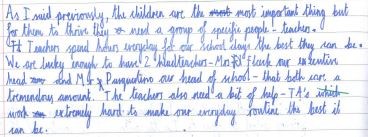 As I said previously, the children are the most most important thing but
for them to thrive they need a group of specific people - teachers.
Teachers spend hours everyday for our school days the best they can be.
We are lucky enough to have 2 headteachers - Mrs Flack our executive
head and Mrs Pasquatino our head of school - that both care a
tremendous amount. The teachers also need a bit of help - TA's which
work extremely hard to make our everyday routine the best it
can be.